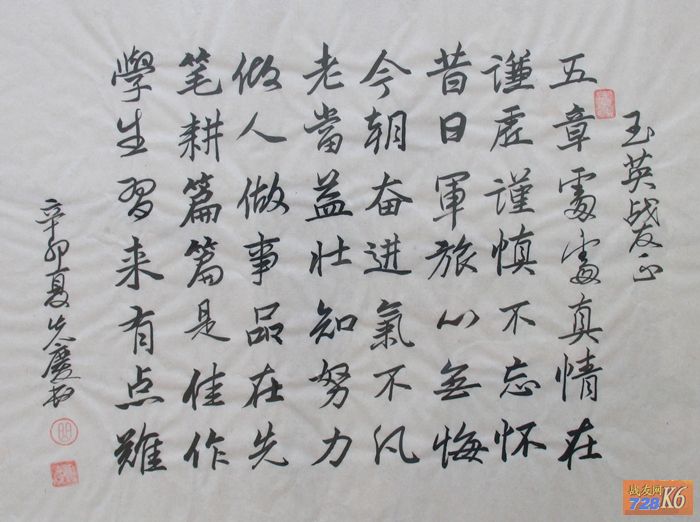 玉英战友正
五章真情在
謙虚謹慎不忘怀
昔日軍旅心無悔
今朝奋进氣不凡
老當益壮知努力
做人做事品在先
笔耕篇篇是佳作
學生習来有点難
辛卯夏
战友网
728 K6